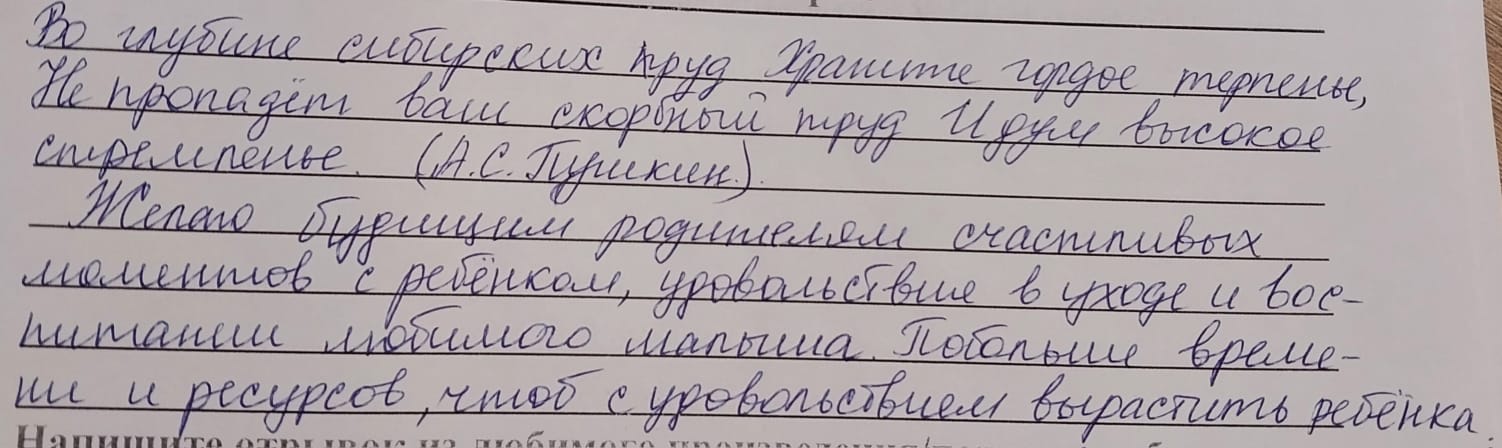 Во глубине сибирских труд Храните гордое терпенье,
Не пропадёт ваш скорбный труд И дум высокое
стремленье. (А.С. Пушкин.).
Желаю будущим родителям счастливых
моментов с ребёнком, удовольствие в уходе и вос-
питании любимого малыша. Побольше време-
ни и ресурсов, чтоб с удовольствием вырастить ребёнка.
Напишите отрывок из любимого произведения